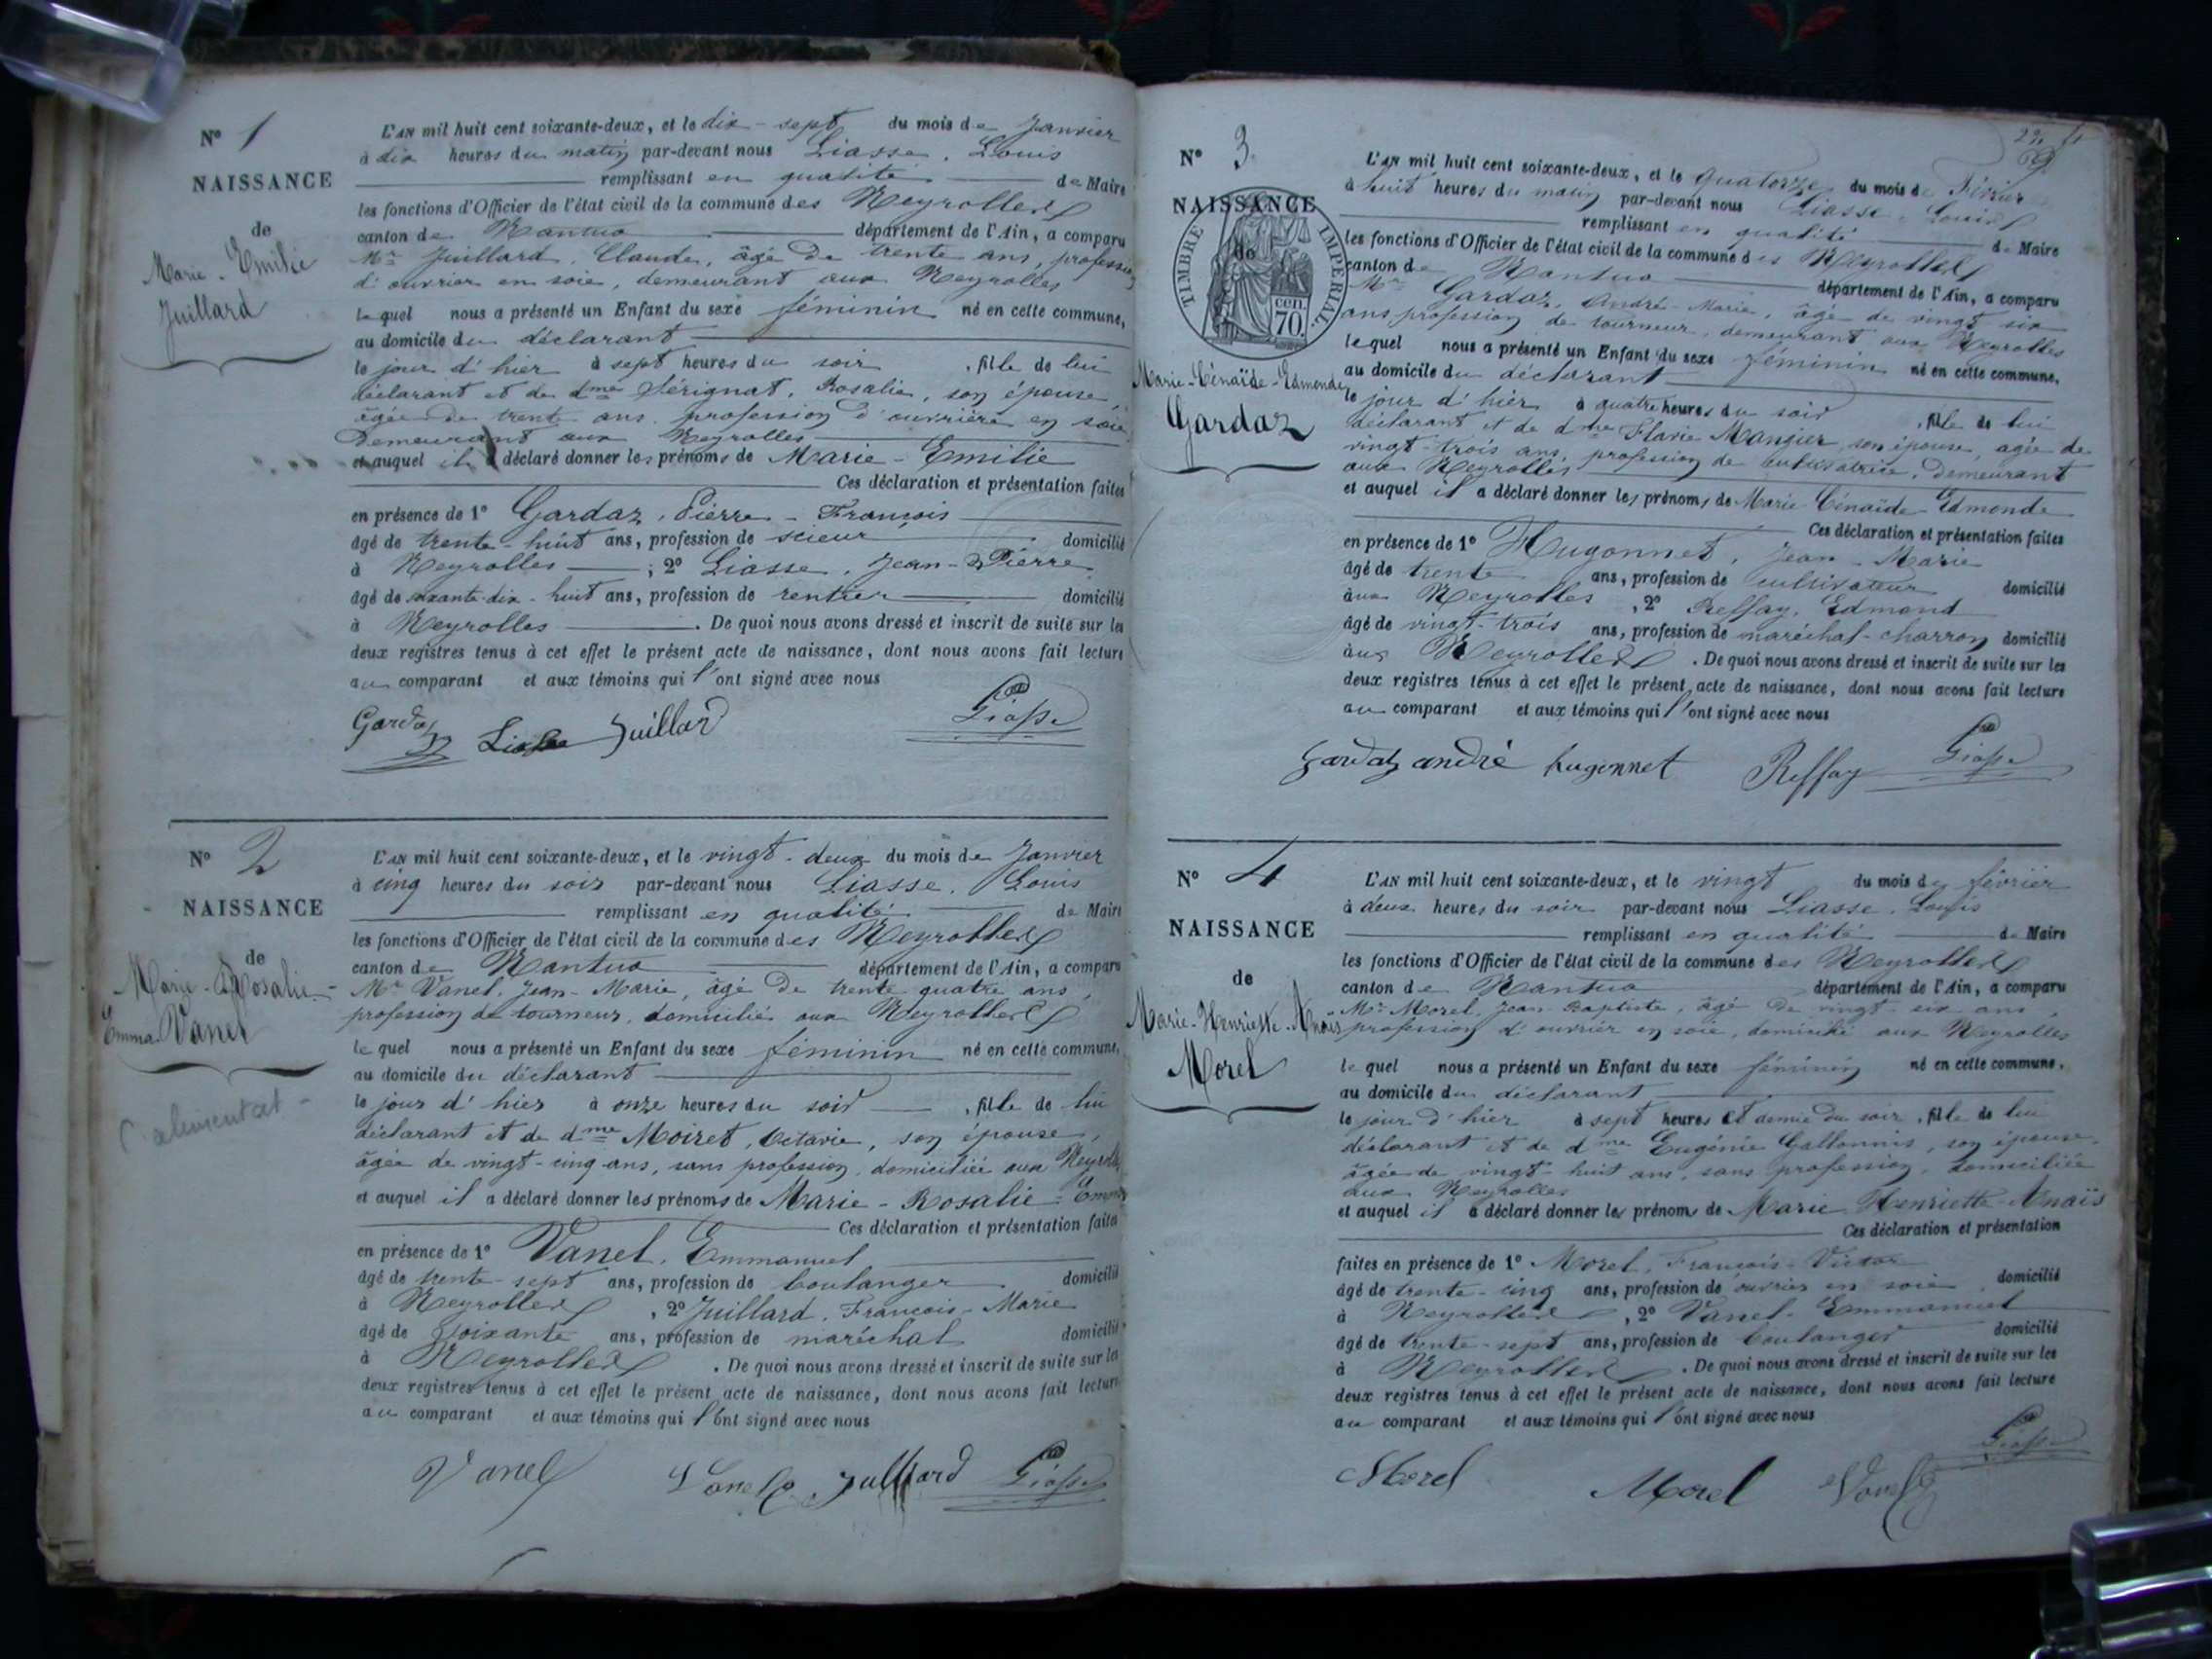 N° 1
NAISSANCE
de
Marie-Emilie
Juillard
L'AN mil huit cent soixante-deux, et le dix-sept du mois de Janvier
à dix heures du matin par-devant nous Liasse, Louis
remplissant en qualité de Maire
les fonctions d'Officier de l'état civil de la commune des Neyrolles
canton de Nantua département de l'Ain, a comparu
Mr Juillard, Claude, âgé de trente ans, profession
d'ouvrier en soie, demeurant aux Neyrolles
lequel nous a présenté un Enfant du sexe féminin né en cette commune,
au domicile du déclarant
le jour d'hier à sept heures du soir, fille de lui
déclarant et de dme Sérignat, Rosalie, son épouse,
âgée de trente ans, profession d'ouvrière en soie
demeurant aux Neyrolles
et auquel il a déclaré donner les prénoms de Marie-Emilie
Ces déclaration et présentation faites
en présence de 1° Gardaz, Pierre-François
âgé de trente-huit ans, profession de scieur domicilié
à Neyrolles ; 2° Liasse, Jean-Pierre
âgé de soixante-dix-huit ans, profession de rentier domicilié
à Neyrolles. De quoi nous avons dressé et inscrit de suite sur les
deux registres tenus à cet effet le présent acte de naissance, dont nous avons fait lecture
au comparant et aux témoins qui l'ont signé avec nous
Gardaz Liasse Juillard Liasse
N° 2
NAISSANCE
de
Marie-Rosalie-
Emma Vanel
L'AN mil huit cent soixante-deux, et le vingt-deux du mois de Janvier
à cinq heures du soir par-devant nous Liasse, Louis
remplissant en qualité de Maire
les fonctions d'Officier de l'état civil de la commune des Neyrolles
canton de Nantua département de l'Ain, a comparu
Mr Vanel, Jean-Marie, âgé de trente quatre ans,
profession de tourneur, domicilié aux Neyrolles
lequel nous a présenté un Enfant du sexe féminin né en cette commune,
au domicile du déclarant
le jour d'hier à onze heures du soir, fille de lui
déclarant et de dme Moiret, Octavie, son épouse,
âgée de vingt-cinq ans, sans profession, domiciliée aux Neyrolles
et auquel il a déclaré donner les prénoms de Marie-Rosalie-Emma
Ces déclaration et présentation faites
en présence de 1° Vanel, Emmanuel
âgé de trente-sept ans, profession de boulanger domicilié
à Neyrolles, 2° Juillard, François-Marie
âgé de soixante ans, profession de maréchal domicilié
à Neyrolles. De quoi nous avons dressé et inscrit de suite sur les
deux registres tenus à cet effet le présent acte de naissance, dont nous avons fait lecture
au comparant et aux témoins qui l'ont signé avec nous
Vanel Vanel Juillard Liasse
N° 3
NAISSANCE
de
TIMBRE IMPERIAL
cen. 70
Marie-Cénaïde-Edmonde
Gardaz
L'AN mil huit cent soixante-deux, et le quatorze du mois de Février
à huit heures du matin par-devant nous Liasse, Louis
remplissant en qualité de Maire
les fonctions d'Officier de l'état civil de la commune des Neyrolles
canton de Nantua département de l'Ain, a comparu
Mr Gardaz, André-Marie, âgé de vingt six
ans, profession de tourneur, demeurant aux Neyrolles
lequel nous a présenté un Enfant du sexe féminin né en cette commune,
au domicile du déclarant
le jour d'hier à quatre heures du soir, fille de lui
déclarant et de dme Flavie Mangier, son épouse, agée de
vingt-trois ans, profession de cultivatrice, demeurant
aux Neyrolles
et auquel il a déclaré donner les prénoms de Marie Cénaïde Edmonde
Ces déclaration et présentation faites
en présence de 1° Hugonnet, Jean-Marie
âgé de trente ans, profession de cultivateur domicilié
aux Neyrolles, 2° Reffay, Edmond
âgé de vingt-trois ans, profession de maréchal-charron domicilié
aux Neyrolles. De quoi nous avons dressé et inscrit de suite sur les
deux registres tenus à cet effet le présent acte de naissance, dont nous avons fait lecture
au comparant et aux témoins qui l'ont signé avec nous
Gardaz andré hugonnet Reffay Liasse
N° 4
NAISSANCE
de
Marie-Henriette-Anaïs
Morel
L'AN mil huit cent soixante-deux, et le vingt du mois de février
à deux heures du soir par-devant nous Liasse, Louis
remplissant en qualité de Maire
les fonctions d'Officier de l'état civil de la commune des Neyrolles
canton de Nantua département de l'Ain, a comparu
Mr Morel, Jean Baptiste, âgé de vingt-six ans,
profession d'ouvrier en soie, domicilié aux Neyrolles
lequel nous a présenté un Enfant du sexe féminin né en cette commune,
au domicile du déclarant
le jour d'hier à sept heures et demie du soir, fille de lui
déclarant et de dme Eugénie Gallonnis, son épouse,
âgée de vingt-huit ans, sans profession, domiciliée
aux Neyrolles
et auquel il a déclaré donner les prénoms de Marie Henriette-Anaïs
Ces déclaration et présentation
faites en présence de 1° Morel, François-Victor
âgé de trente-cinq ans, profession d'ouvrier en soie domicilié
à Neyrolles, 2° Vanel, Emmanuel
âgé de trente-sept ans, profession de boulanger domicilié
à Neyrolles. De quoi nous avons dressé et inscrit de suite sur les
deux registres tenus à cet effet le présent acte de naissance, dont nous avons fait lecture
au comparant et aux témoins qui l'ont signé avec nous
Morel Morel Vanel Liasse